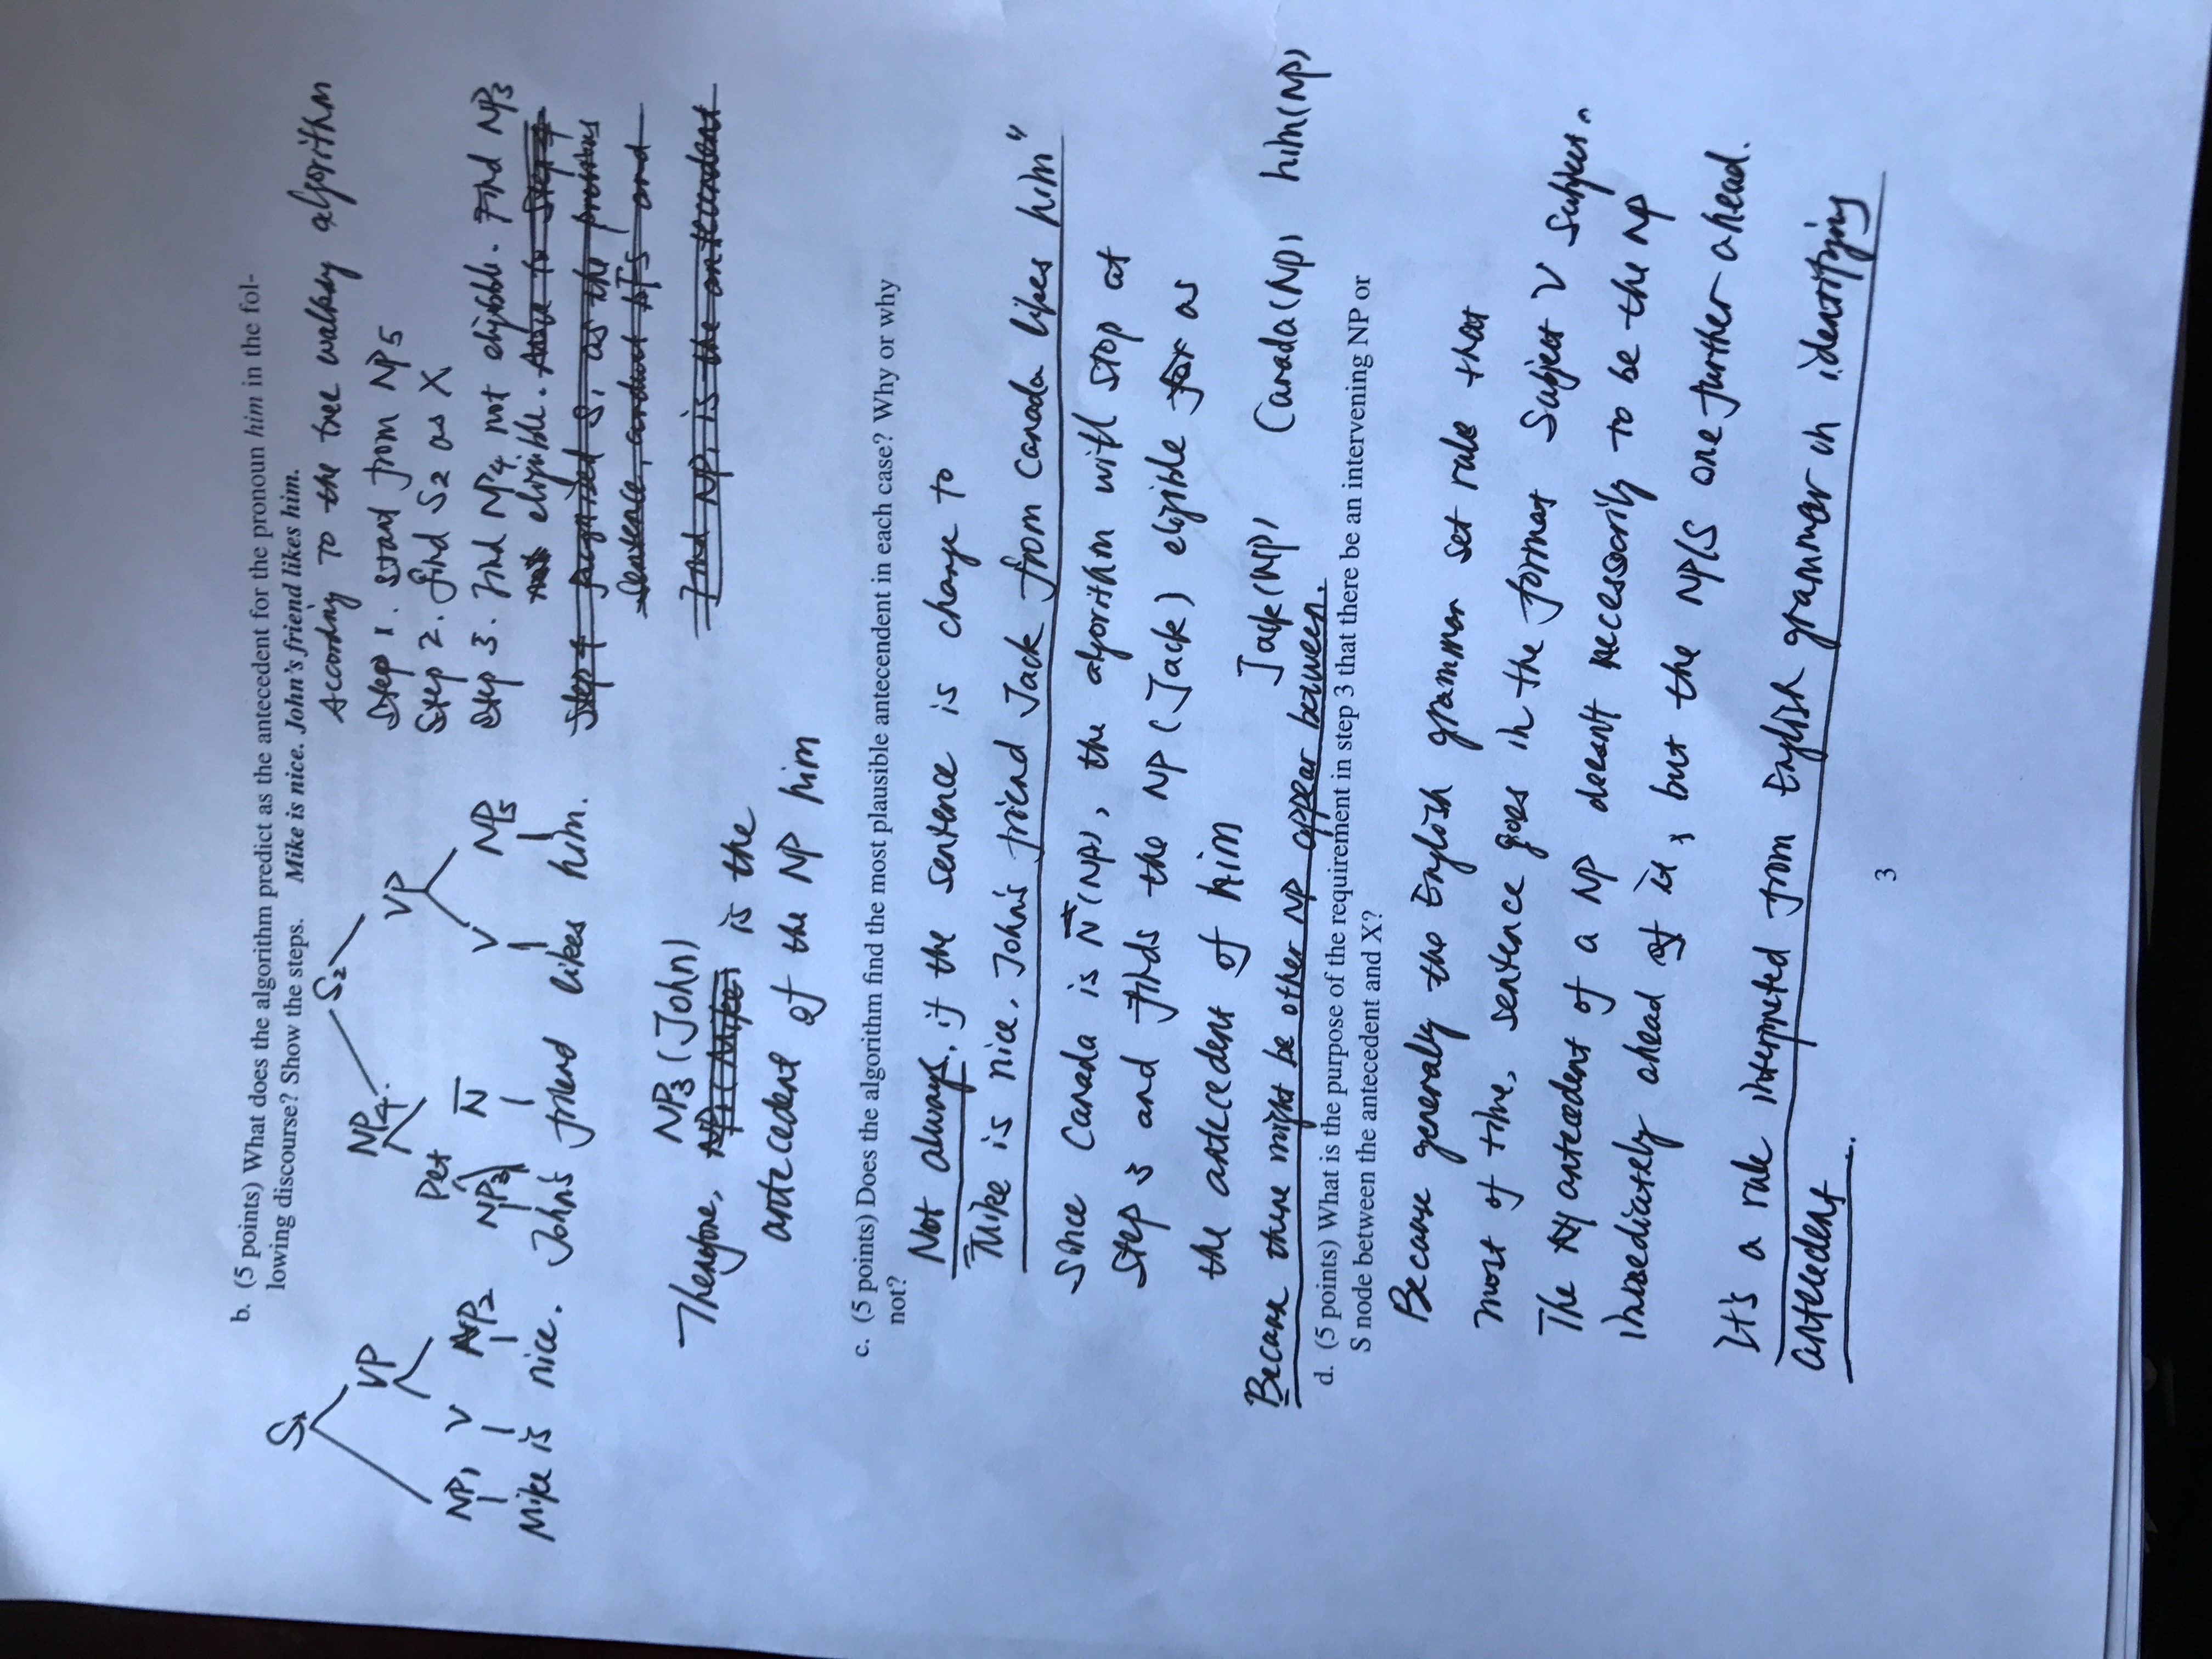 b. (5 points) What does the algorithm predict as the antecedent for the pronoun him in the fol-
lowing discourse? Show the steps. Mike is nice. John's friend likes him.
S1
VP
NP1 V NP2
Mike is nice.
S2
NP4
VP
Det
NP3 N̅
V NP5
John's friend likes him.
According To the tree walkdy algorithm
Step 1. start from NP5
Step 2. find S2 as X
Step 3. Find NP4 not eligible. Find NP3
not eligible. Move to Step 4
Step 4 S1 as the previous
sentence, conduct BFS and
Find NP1 is the antecendent
NP3 (John)
Therefore, NP1 (Mike) is the
antecedent of the NP him
c. (5 points) Does the algorithm find the most plausible antecendent in each case? Why or why
not?
Not always, if the sentence is change to
"Mike is nice. John's friend Jack from Canada likes him"
since Canada is N̅ (NP), the algorithm will stop at
step 3 and finds the NP (Jack) eligible for as
the antecedent of him
Jack(NP) Canada(NP) him(NP)
Because there might be other NP appear between.
d. (5 points) What is the purpose of the requirement in step 3 that there be an intervening NP or
S node between the antecedent and X?
Because generally the English grammar set rule that
most of time, sentence goes in the format Subject V Subject.
The antecedent of a NP doesn't necessarily to be the NP
immediately ahead of it, but the NP/S one further ahead.
It's a rule interpreted from English grammar in identifying
antecedent.
3